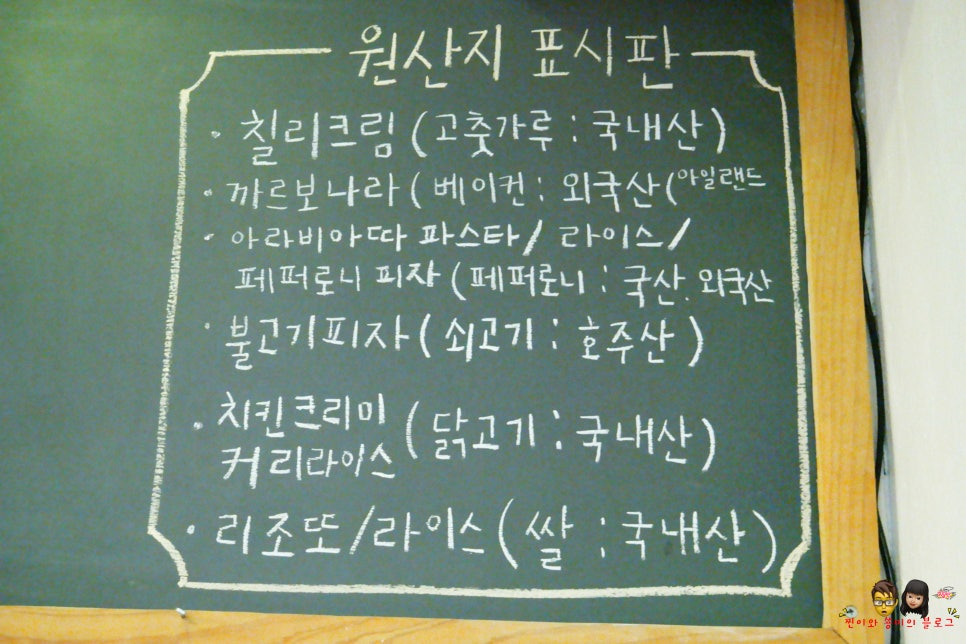 원산지 표시판
· 칠리크림 (고춧가루 : 국내산)
· 까르보나라 (베이컨 : 외국산 (아일랜드
· 아라비아따 파스타 / 라이스 /
페퍼로니 피자 (페퍼로니 : 국산. 외국산
· 불고기피자 (쇠고기 : 호주산)
· 치킨크리미
커리라이스 (닭고기 : 국내산)
· 리조또/라이스 (쌀 : 국내산)
찐이와 쏭이의 블로그